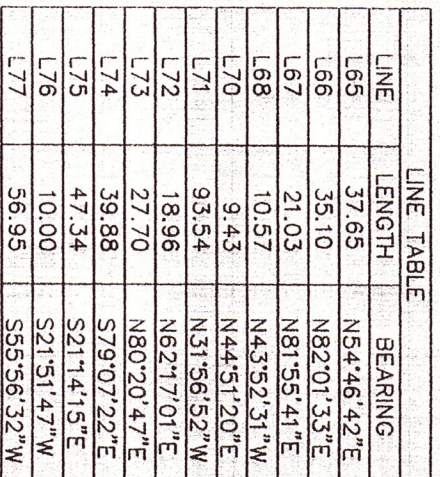 LINE TABLE
LINE LENGTH BEARING
L65 37.65 N54°46'42"E
L66 35.10 N82°01'33"E
L67 21.03 N81°55'41"E
L68 10.57 N43°52'31"W
L70 9.43 N44°51'20"E
L71 93.54 N31°56'52"W
L72 18.96 N62°17'01"E
L73 27.70 N80°20'47"E
L74 39.88 S79°07'22"E
L75 47.34 S21°14'15"E
L76 10.00 S21°51'47"W
L77 56.95 S55°56'32"W